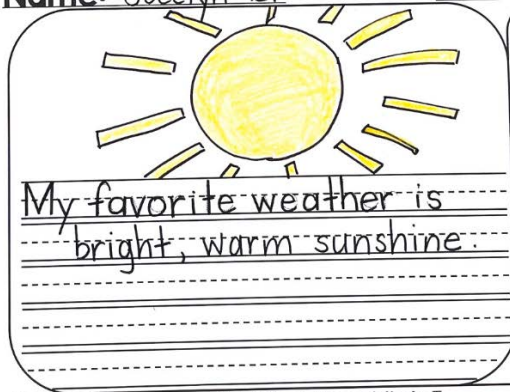 Name:
My favorite weather is
bright, warm sunshine.